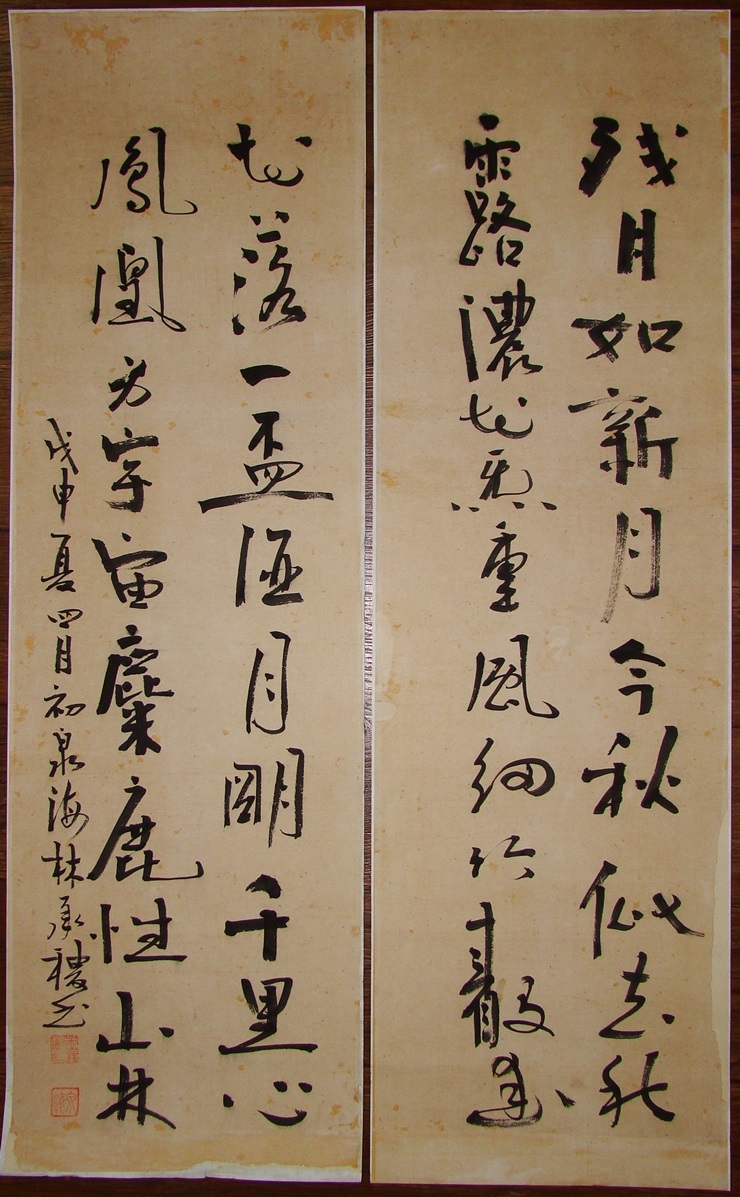 残月如新月今秋似去秋
露濃花氣重風細竹聲幽
花落一盃酒月明千里心
鳳凰為宇宙麋鹿性山林
戊申夏四月初泉海林承穠書